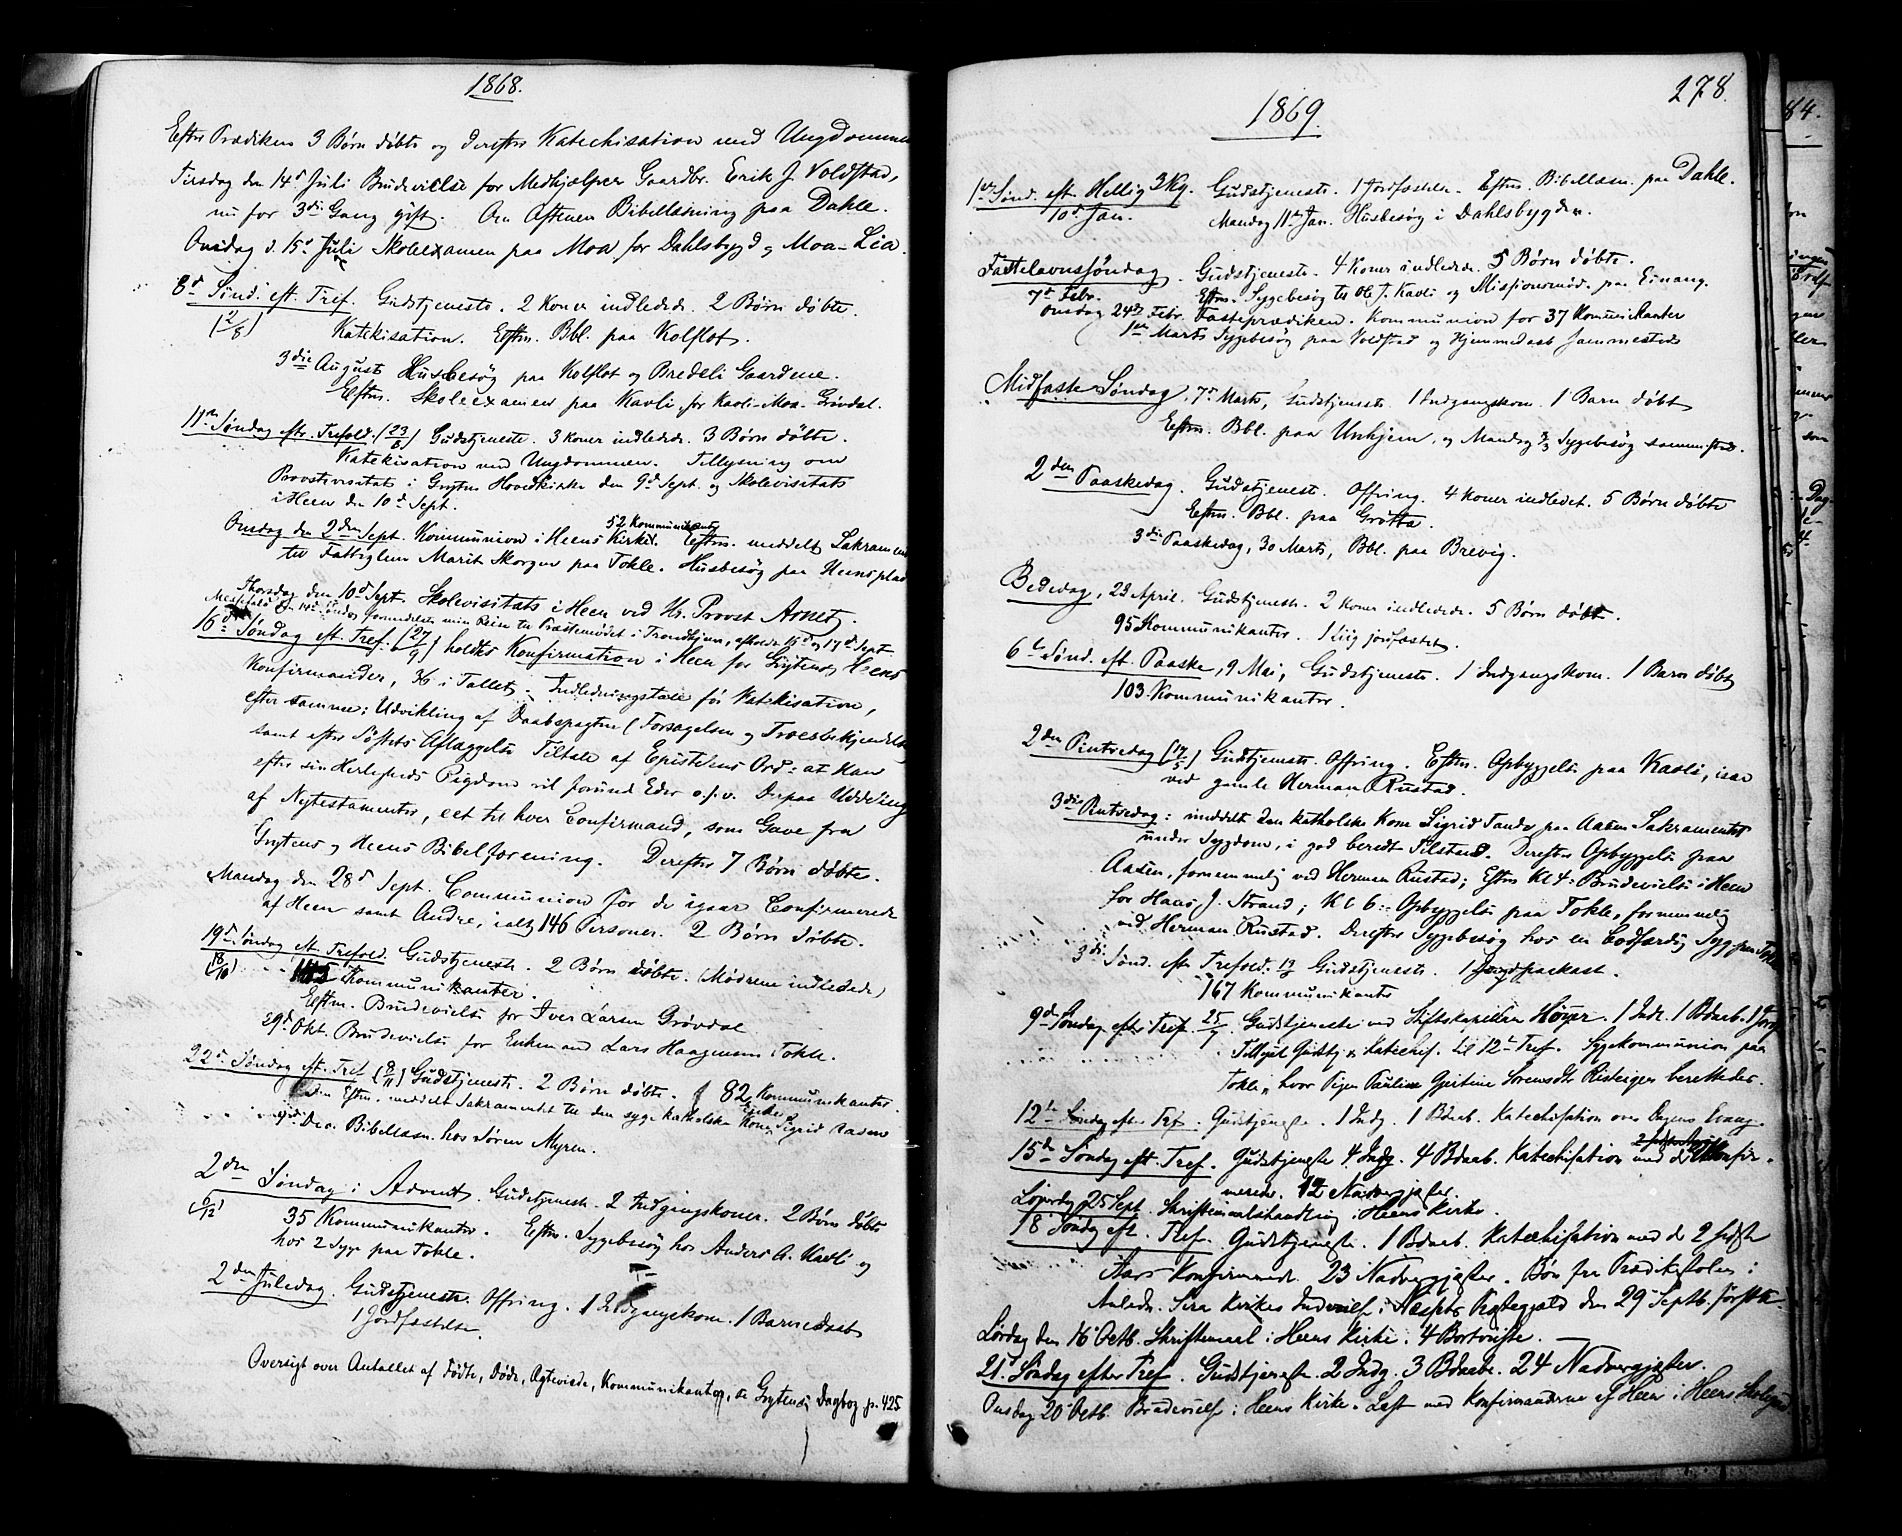 1868.
Efter Prædiken 3 Børn døbte og derefter Katechisation med Ungdommen
Tirsdag den 14d Juli Brudevielse for Medhjælper Gaardbr. Erik J. Voldstad,
nu for 3die Gang gift. Om Aftenen Bibellæsning paa Dahle.
Onsdag d. 15d Juli Skoleexamen paa Moa for Dahlsbygd og Moa-Lia.
8d Sønd. eft. Tref. Gudstjeneste. 2 Koner indledede. 2 Børn døbte.
(2/8) Katekisation. Eftm. Bbl. paa Kolflot.
3die August Husbesøg paa Kolflot og Bredeli Gaardene.
Eftm. Skoleexamen paa Kavli for Kavli-Moa-Grøvdal.
11te Søndag eftr. Trefold. (23/8) Gudstjeneste. 3 Koner indledede. 3 Børn døbte.
Katekisation med Ungdommen. Tillysning om
Provstivisitats i Grytens Hovedkirke den 9d Sept. og Skolevisitats
i Heen den 10d Sept.
52 Kommunikanter
Onsdag den 2den Sept. Kommunion i Heens Kirke. Eftm. meddelt Sakrament
til Fattiglem Marit Skorgen paa Tokle. Husbesøg paa Heensplad
Thorsdag den 10d Sept. Skolevisitats i Heen ved Hr. Provst Arnet.
Messefald den 14d Søndag formedelst min Reise til Præstemødet i Trondhjem, afholdt 16d og 17d Sept.
16d Søndag eft. Tref. (27/9) holdtes Konfirmation i Heen for Grytens og Heens
Konfirmander, 36 i Tallet. Indledningstale før Katekisation,
efter samme: Udvikling af Daabspagten (Forsagelsen og Troesbekjendelse
samt efter Løftets Aflæggelse Tiltale af Epistelens Ord: at han
efter sin Herligheds Rigdom vil forunde Eder o.s.v. Derpaa Uddeling
af Nytestamenter, eet til hver Confirmand, som Gave fra
Grytens og Heens Bibelforening. Derefter 7 Børn døbte.
Mandag den 28d Sept. Communion for de igaar Confirmerede
af Heen samt Andre, ialt 146 Personer. 2 Børn døbte.
19d Søndag eft. Trefold. Gudstjeneste. 2 Børn døbte. (Mødrene indledede)
(18/10) 145 Kommunikanter.
Eftm. Brudevielse for Iver Larsen Grøvdal
29d Okt. Brudevielse for Enkemand Lars Haagensen Tokle.
22d Søndag eft. Tref. (8/11) Gudstjeneste. 2 Børn døbte. 82 Kommunikanter.
Eftm. meddelt Sakramentet til den syge katholske Kone Sigrid
9de Do. Bibellæsn. hos Søren Myren.
2den Søndag i Advent. Gudstjeneste. 2 Indgangskoner. 2 Børn døbte
(6/12) 35 Kommunikanter. Eftm. Sygebesøg hos Anders A. Kavli og
hos 2 Syge paa Tokle.
2den Juledag. Gudstjeneste. Offring. 1 Indgangskone. 1 Barnedaab
1 Jordfæstelse.
Oversigt over Antallet af Fødte, Døde, Ægteviede, Kommunikanter, se Grytens Dagbog p. 425
278.
1869.
1ste Sønd. eft. Hellig 3Kg. Gudstjeneste. 1 Jordfæstelse. Eftm. Bibellæsn. paa Dahle.
10d Jan. Mandag 11te Jan. Husbesøg i Dahlsbygden.
Fastelavnssøndag. Gudstjeneste. 4 Koner indledede. 5 Børn døbte.
7d Febr. Eftm. Sygebesøg til Ole J. Kavli og Missionsmøde paa Einang.
Onsdag 24de Febr. Fasteprædiken. Kommunion for 37 Kommunikanter
1ste Marts Sygebesøg paa Voldstad og Hjemmedaab sammesteds
Midfaste Søndag, 7d Marts, Gudstjeneste 1 Indgangskone. 1 Barn døbt
Eftm. Bbl. paa Unhjem, og Mandag 8/3 Sygebesøg sammesteds.
2den Paaskedag. Gudstjeneste. Offring. 4 Koner indledet. 5 Børn døbte
Eftm. Bbl. paa Grøtta.
3die Paaskedag, 30 Marts, Bbl. paa Brevig.
Bededag, 23 April. Gudstjeneste. 2 Koner indledede. 5 Børn døbt.
95 Kommunikanter. 1 Liig jordfæstet.
6te Sønd. eft. Paaske, 9 Mai, Gudstjeneste. 1 Indgangskone. 1 Barn døbt
103 Kommunikanter.
2den Pintsedag (17/5) Gudstjeneste. Offring. Eftm. Opbyggelse paa Kavli, især
ved gamle Herman Rustad.
3die Pintsedag: meddelt den katholske Kone Sigrid paa Aasen Sakramentet
under Sygdom, i god beredt Tilstand. Derefter Opbyggelse paa
Aasen, fornemmelig ved Herman Rustad; Eftm Kl 4: Brudevielse i Heen
for Hans J. Strand; Kl 6: Opbyggelse paa Tokle, fornemmelig
ved Herman Rustad. Derefter Sygebesøg hos en bodfærdig Syg paa Tokle
3die Sønd. eft. Trefold. 13/6 Gudstjeneste. 1 Jordpaakast.
167 Kommunikanter
9de Søndag efter Tref. 25/7 Gudstjeneste ved Stiftskapellan Høyer. 1 Indl. 1 Bdaab. 1 Jordf.
Tillyst Gudstj. og Katechis. til 12te Tref. Sygekommunion paa
Tokle, hvor Pigen Pauline Gjertine Sorensdtr berettedes.
12te Søndag efter Tref. Gudstjeneste. 1 Indg. 1 Bdaab. Katechisation over Dagens Evang.
15de Søndag eft. Tref. Gudstjeneste 4 Indg. 4 Bdaab. Katechisation med de Konfir-
merede. 12 Nadvergjester.
Løverdag 25 Sept. Skriftemaalshandling i Heens Kirke.
18 Søndag eft. Tref. Gudstjeneste. 1 Bdaab. Katechisation med de 2 sidste
Aars Konfirmerede. 23 Nadvergjester. Bøn fra Prædikestolen i
Anledn. Sira Kirkes Indvielse i Nessets Præstegjeld den 29 Septb. førstk.
Lørdag den 16 Octb. Skriftemaal i Heens Kirke. 4 Bortreiste.
21. Søndag efter Tref. Gudstjeneste. 2 Indg. 3 Bdaab. 24 Nadvergjester.
Onsdag 20 Octb. Brudevielse i Heens Kirke. Læst med Konfirmanderne af Heen i Heens
84.